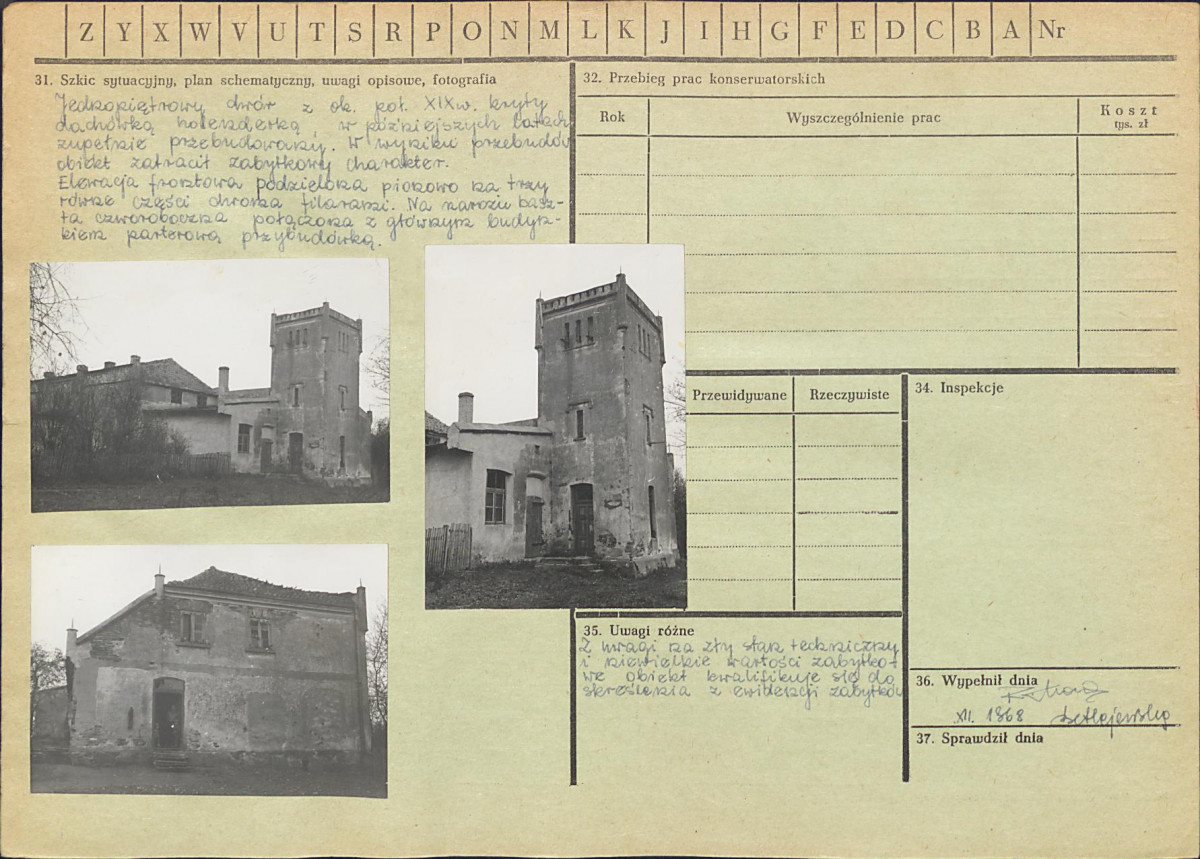 Z Y X W V U T S R P O N M L K J I H G F E D C B A Nr
31. Szkic sytuacyjny, plan schematyczny, uwagi opisowe, fotografia
Jednopiętrowy dwór z ok. poł. XIX w. kryty
dachówką holenderką, w późniejszych latach
zupełnie przebudowany. W wyniku przebudów
obiekt zatracił zabytkowy charakter.
Elewacja frontowa podzielona pionowo na trzy
równe części dwoma filarami. Na narożu basz-
ta czworoboczna połączona z głównym budyn-
kiem parterową przybudówką.
32. Przebieg prac konserwatorskich
Rok
Wyszczególnienie prac
Koszt
tys. zł
Przewidywane
Rzeczywiste
34. Inspekcje
35. Uwagi różne
Z uwagi na zły stan techniczny
i niewielkie wartości zabytko-
we obiekt kwalifikuje się do
skreślenia z ewidencji zabytków
36. Wypełnił dnia
XII. 1968
37. Sprawdził dnia